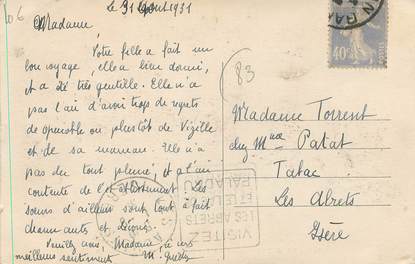 le 31 Août 1931
Madame,
Votre fille a fait un
bon voyage, elle a bien dormi,
et a été très gentille. Elle n'a
pas l'air d'avoir trop de regrets
de grenoble ou plustôt de Vizille
et de sa maman. Elle n'a
pas du tout pleuré, et a l'air
contente de cet
d'ailleurs sont tout à fait
charmants et
Veuillez avoir, Madame, à mes
meilleurs sentiments
106
83
40c
Madame Torrent
chez Mme Patat
Tabac
Les Abrets
Isère
VISITEZ
LES ABRETS
ET LE LAC
PALADRU